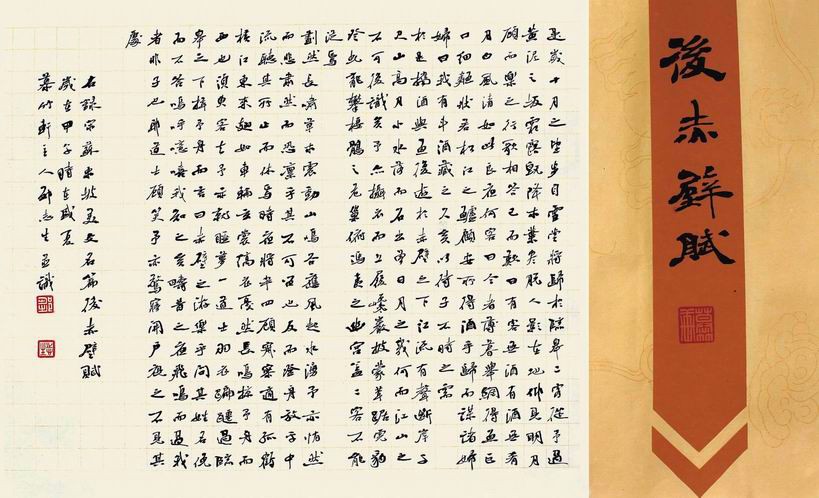 後赤壁賦
是歲十月之望步自雪堂將歸於臨皋二客從予過
黃泥之坂霜露既降木葉盡脫人影在地仰見明月
顧而樂之行歌相答已而歎曰有客無酒有酒無肴
月白風清如此良夜何客曰今者薄暮舉網得魚巨
口細鱗狀若松江之鱸顧安所得酒乎歸而謀諸婦
婦曰我有斗酒藏之久矣以待子不時之需
於是攜酒與魚復遊於赤壁之下江流有聲斷岸千
尺山高月小水落而石出曾日月之幾何而江山之
不可復識矣予乃攝衣而上履巉巖披蒙茸踞虎豹
登虬龍攀棲鶻之危巢俯馮夷之幽宮蓋二客不能
從焉
劃然長嘯草木震動山鳴谷應風起水湧予亦悄然
而悲肅然而恐凜乎其不可留也反而登舟放乎中
流聽其所止而休焉時夜將半四顧寂寥適有孤鶴
橫江東來翅如車輪玄裳縞衣戛然長鳴掠予舟而
西也須臾客去予亦就睡夢一道士羽衣蹁躚過臨
皋之下揖予而言曰赤壁之游樂乎問其姓名俛
而不答嗚呼噫嘻我知之矣疇昔之夜飛鳴而過我
者非子也耶道士顧笑予亦驚寤開戶視之不見其
處
右錄宋蘇東坡美文名篇後赤壁賦
歲在甲子時在盛夏
慕竹軒主人邵志生並識